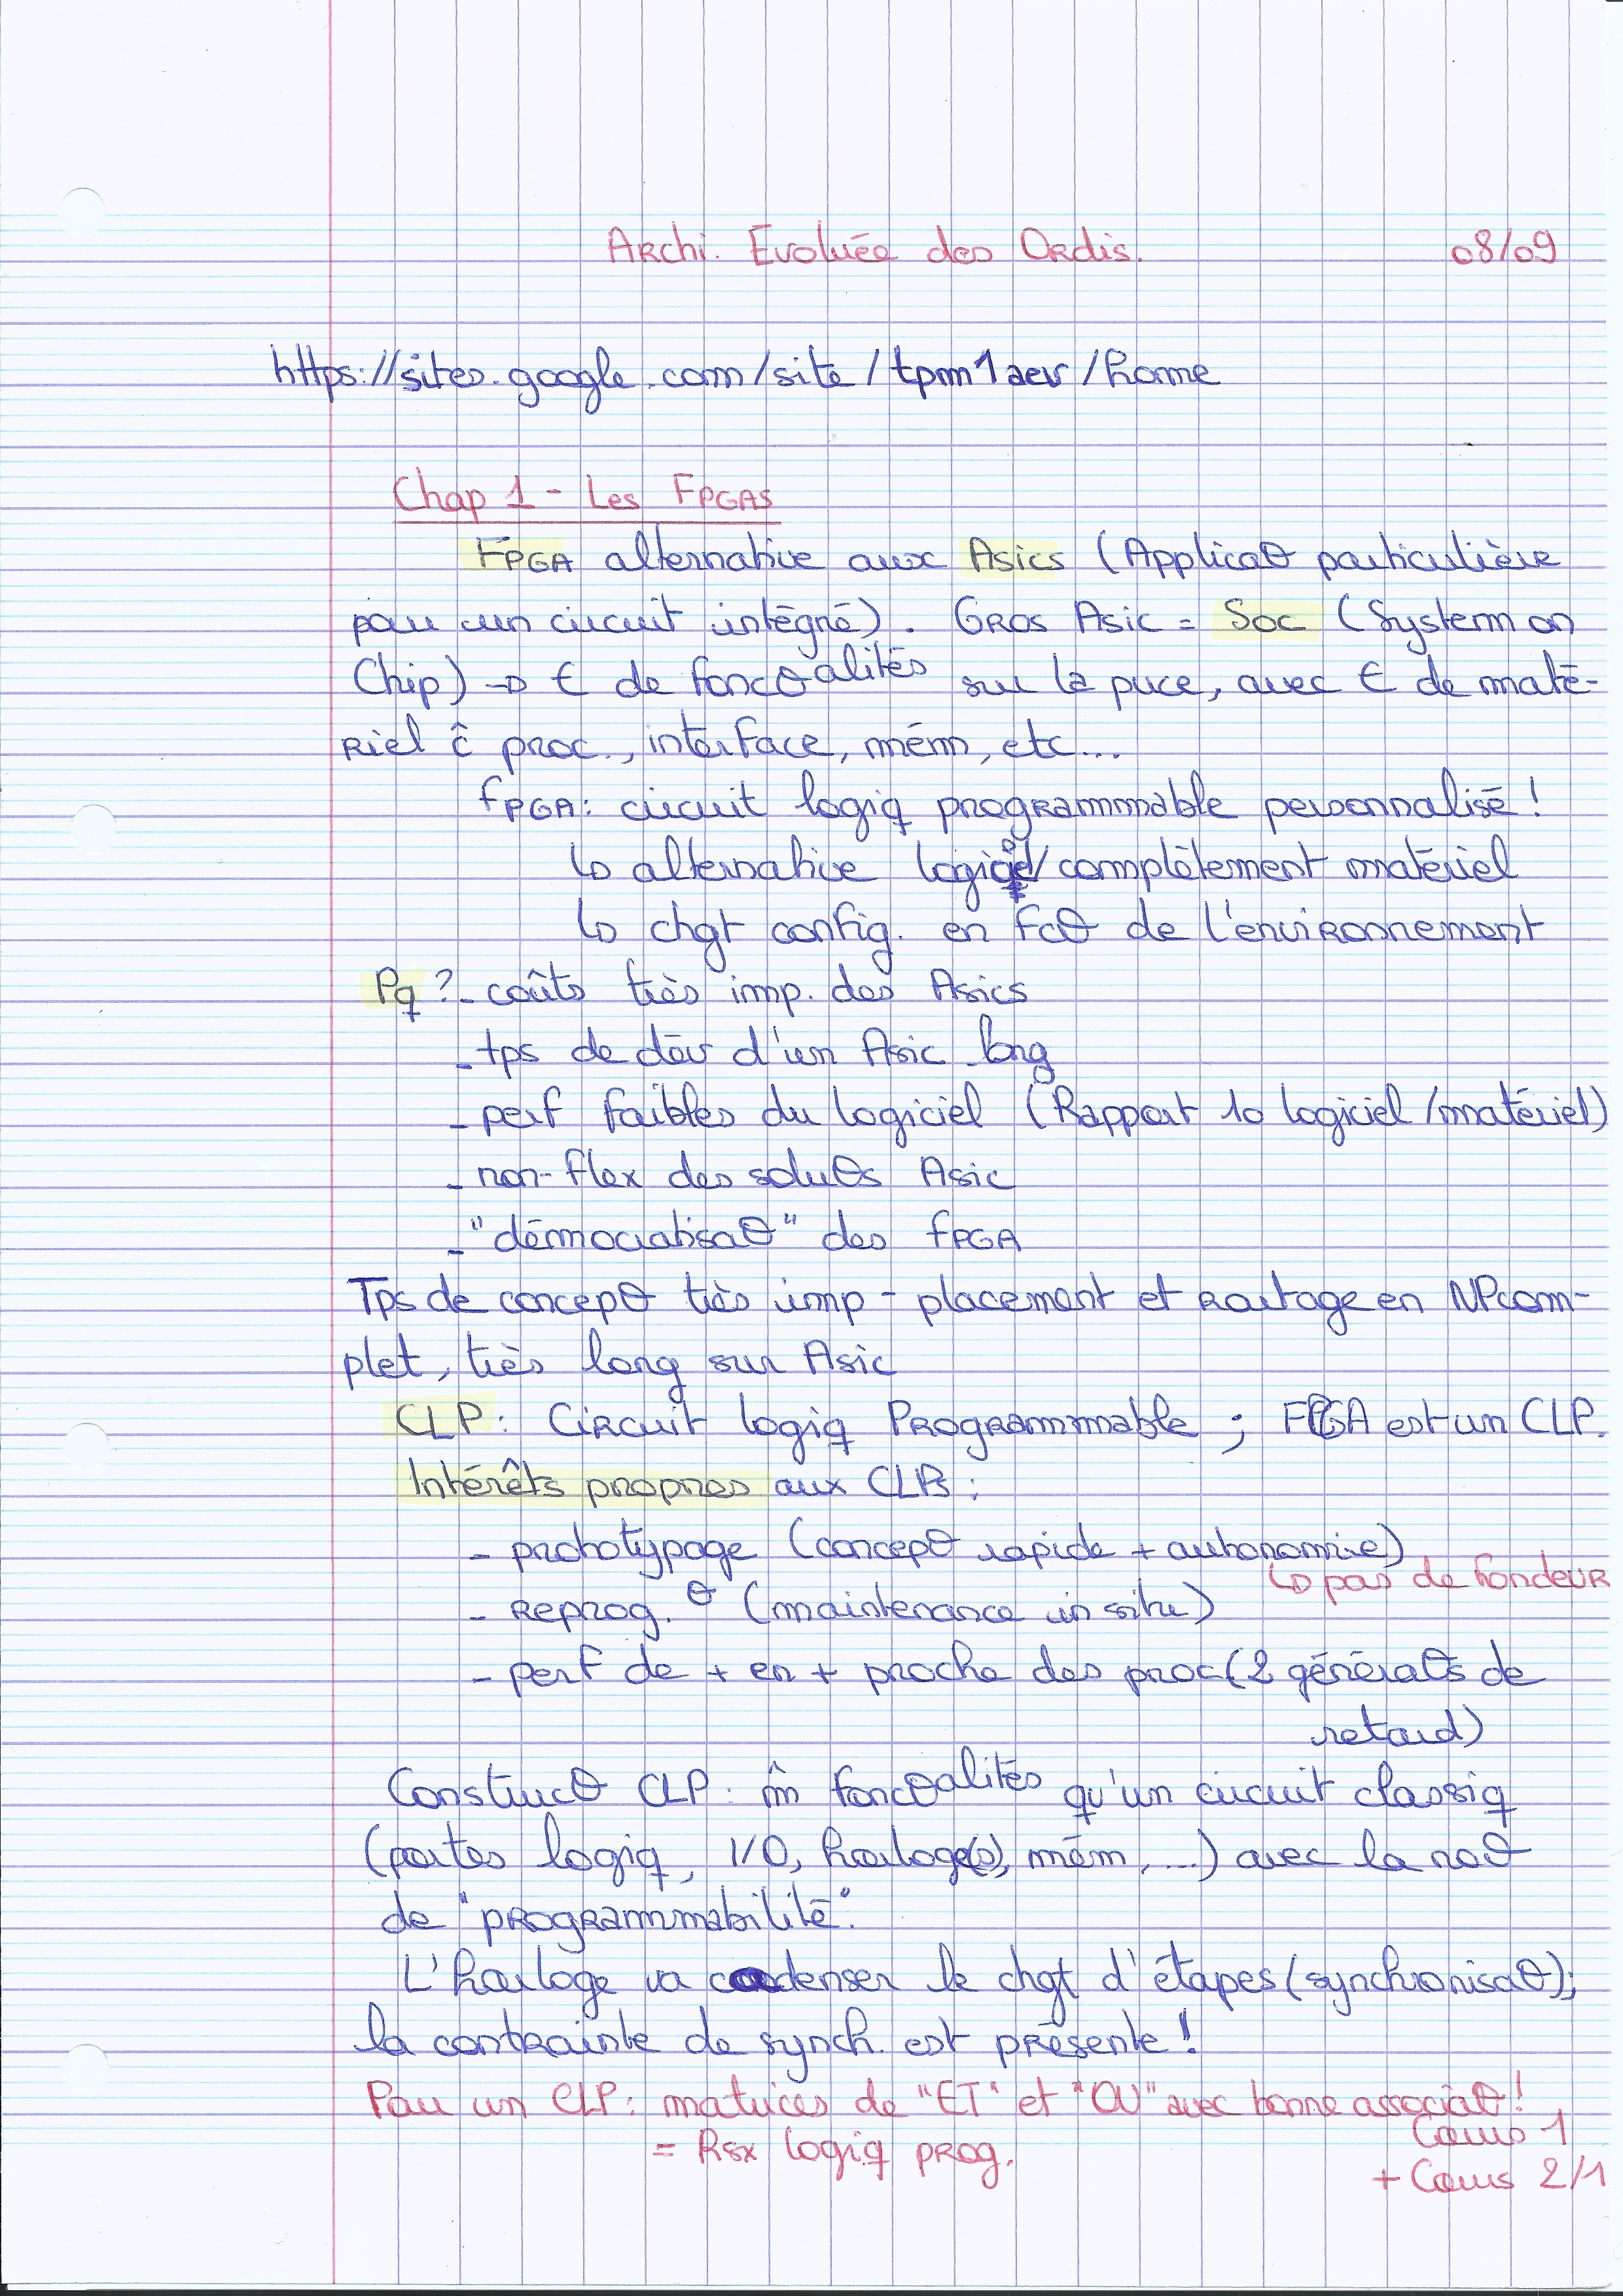 Archi. Evoluée des Ordis. 08/09
https://sites.google.com/site/tpm1aev/home
Chap 1 - Les FPGAs
FPGA alternative aux Asics (Applicaθ particulière
pour un circuit intégré). Gros Asic = Soc (System on
Chip) → € de foncθalités sur la puce, avec € de maté-
riel ĉ proc., interface, mém, etc...
FPGA: circuit logiq programmable personnalisé!
↳ alternative logiciel/complètement matériel
↳ chgt config. en fcθ de l'environnement
Pq? - coûts très imp. des Asics
- tps de dév d'un Asic long
- perf faibles du logiciel (Rapport 10 logiciel/matériel)
- non-flex des soluθs Asic
- "démocratisaθ" des FPGA
Tps de concepθ très imp - placement et routage en NPcom-
plet, très long sur Asic
CLP: Circuit logiq Programmable ; FPGA est un CLP.
Intérêts propres aux CLPs:
- prototypage (concepθ rapide + autonomie)
↳ pas de fondeur
- Reprog.θ (maintenance in situ)
- perf de + en + proche des proc (2 généraθs de
retard)
Construcθ CLP: m̂ foncθalités qu'un circuit classiq
(portes logiq, I/O, horloge(s), mém, ...) avec la noθ
de "programmabilité".
L'horloge va cadenser le chgt d'étapes (synchronisaθ);
la contrainte de synch. est présente!
Pour un CLP: matrices de "ET" et "OU" avec bonne associaθ!
= Rsx logiq prog.
Cours 1
+ Cours 2/1